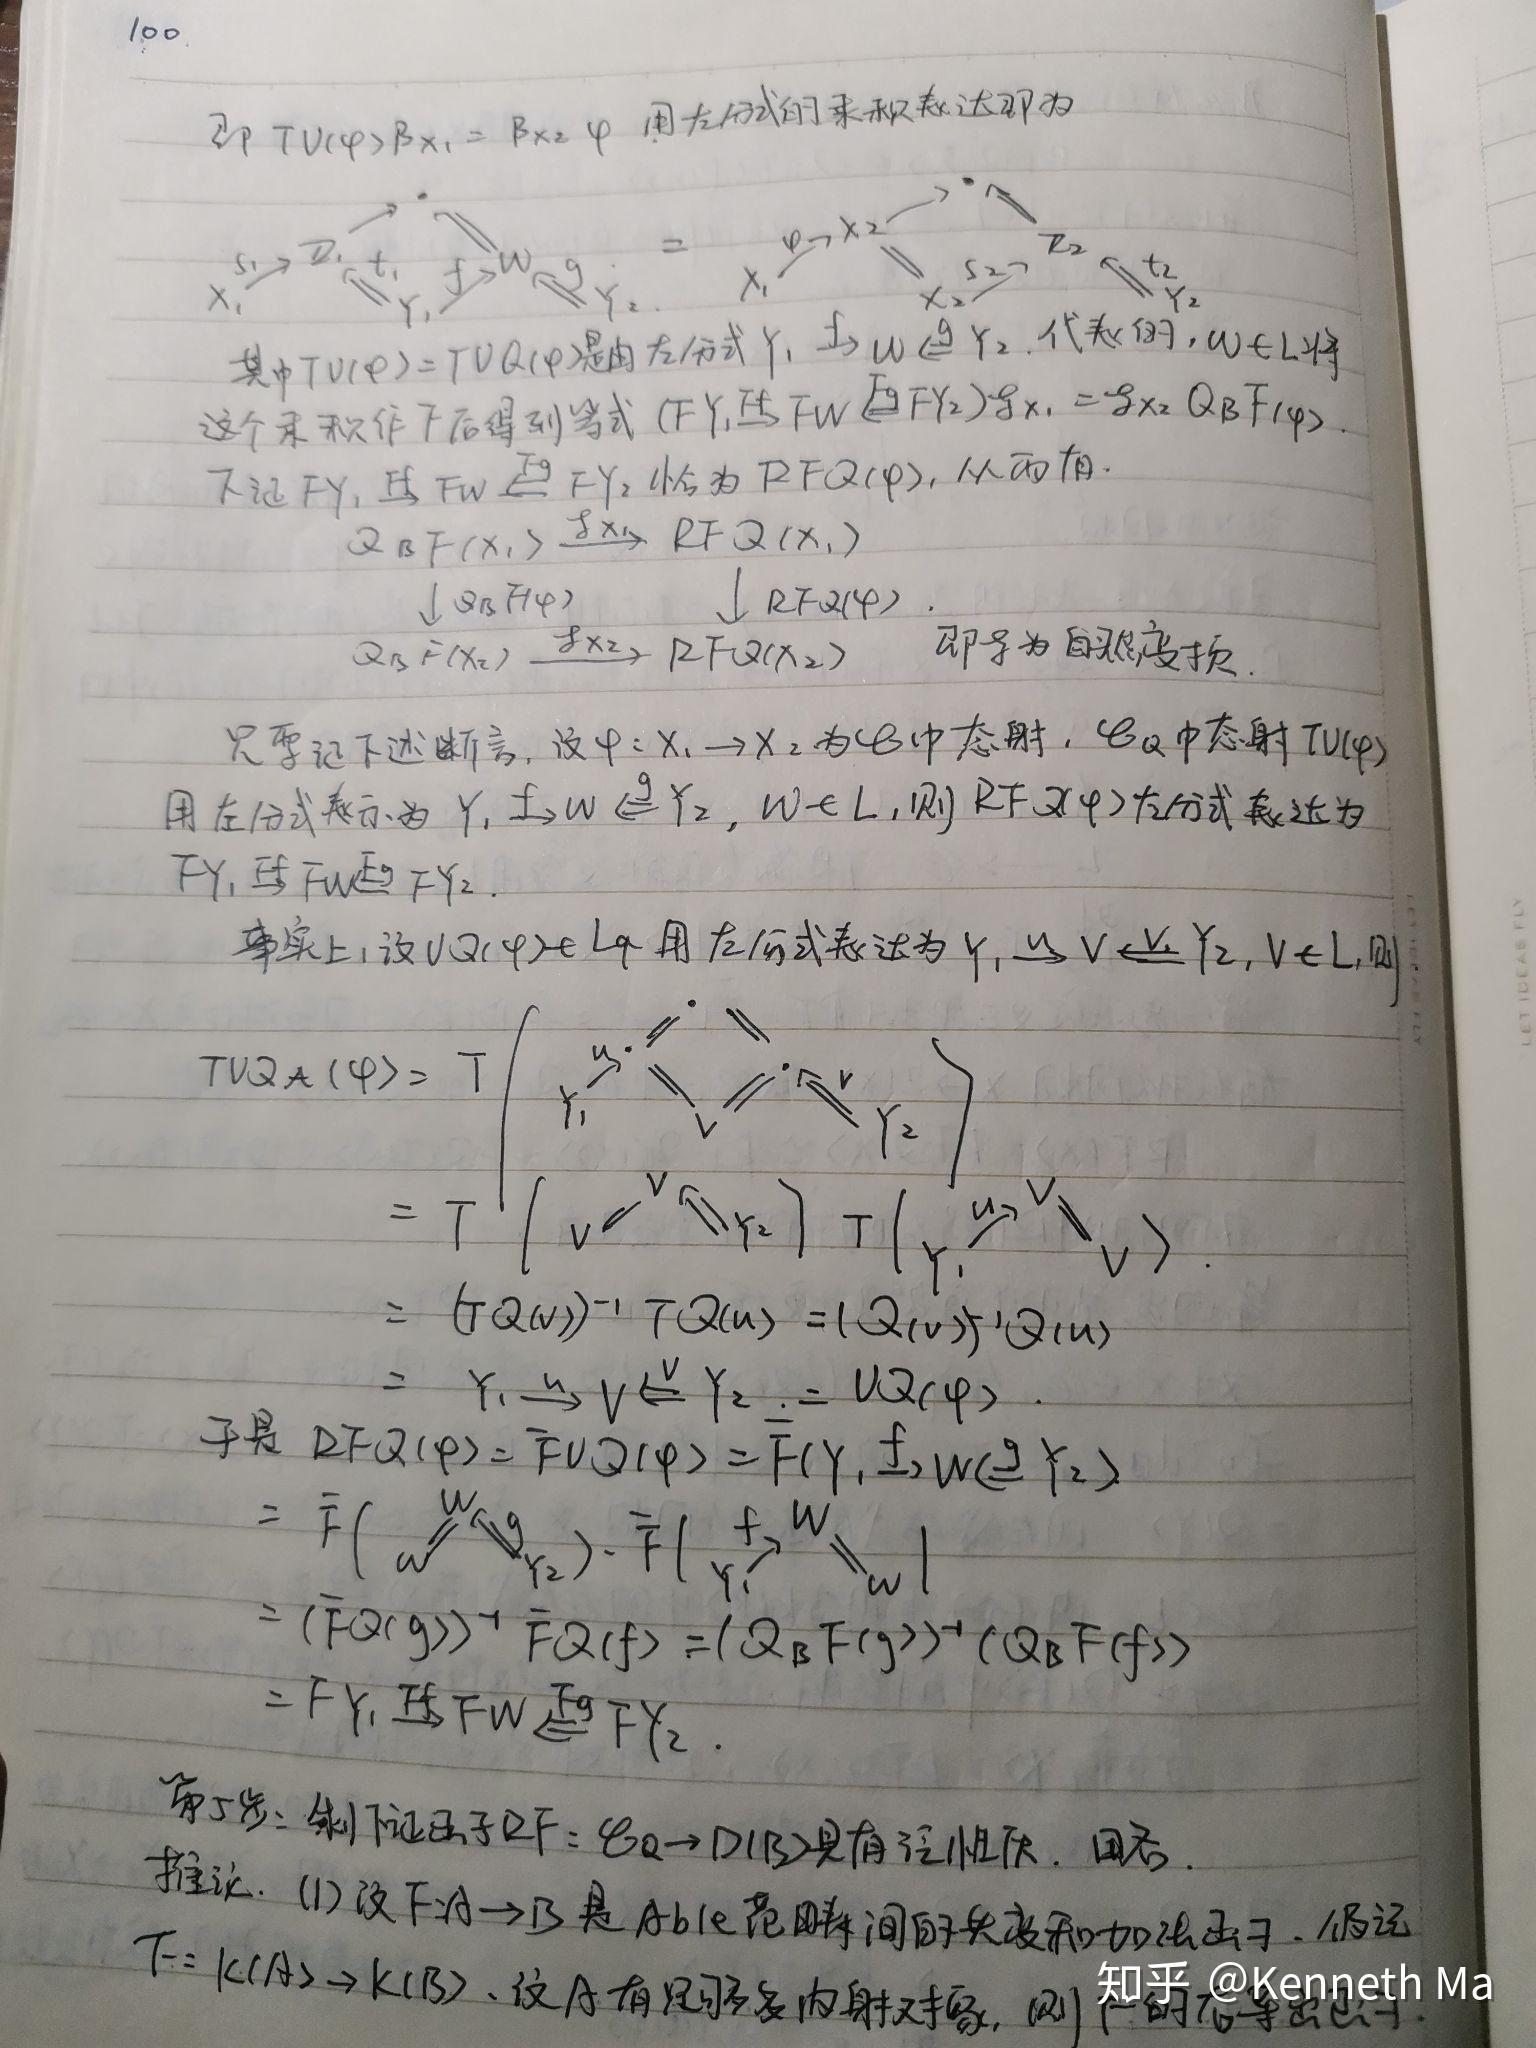 100
即 TU(φ)βx₁ = βx₂ φ 用左分式的乘积表达即为
X₁ s₁ t₁ Y₁ f W g Y₂ = X₁ φ X₂ X₂ s₂ t₂ Y₂
其中TU(φ)=TUQ(φ)是由左分式 Y₁ f→ W ⇐g Y₂ 代表的, W∈L将
这个乘积作F后得到等式 (FY₁ Ff→ FW ⇐Fg FY₂) ξx₁ = ξx₂ Q_B F(φ).
下证 FY₁ Ff→ FW ⇐Fg FY₂ 恰为 RFQ(φ), 从而有.
Q_B F(X₁) ξx₁→ RFQ(X₁)
↓Q_B F(φ) ↓RFQ(φ).
Q_B F(X₂) ξx₂→ RFQ(X₂) 即ξ为自然变换.
只要证下述断言, 设φ: X₁→X₂为𝒞中态射, 𝒞_Q中态射TU(φ)
用左分式表示为 Y₁ f→ W ⇐g Y₂, W∈L, 则RFQ(φ)左分式表达为
FY₁ Ff→ FW ⇐Fg FY₂.
事实上, 设UQ(φ)∈L_Q 用左分式表达为 Y₁ u→ V ⇐v Y₂, V∈L, 则
TUQ_A(φ) = T( Y₁ u V v Y₂ )
= T( V V Y₂ ) T( Y₁ u V V ).
= (TQ(v))⁻¹ TQ(u) = (Q(v))⁻¹Q(u)
= Y₁ u→ V ⇐v Y₂ = UQ(φ).
于是 RFQ(φ) = F̄UQ(φ) = F̄(Y₁ f→ W ⇐g Y₂)
= F̄( W W g Y₂ )·F̄( Y₁ f W W )
= (F̄Q(g))⁻¹ F̄Q(f) = (Q_B F(g))⁻¹ (Q_B F(f))
= FY₁ Ff→ FW ⇐Fg FY₂.
第5步: 剩下证函子RF: 𝒞_Q→D(B)具有泛性质. 因否.
推论. (1) 设F:A→B 是Able范畴间的共变和加法函子. 仍记
F: K(A)→K(B). 设A有足够多内射对象, 则F的右导出函子.
知乎 @Kenneth Ma